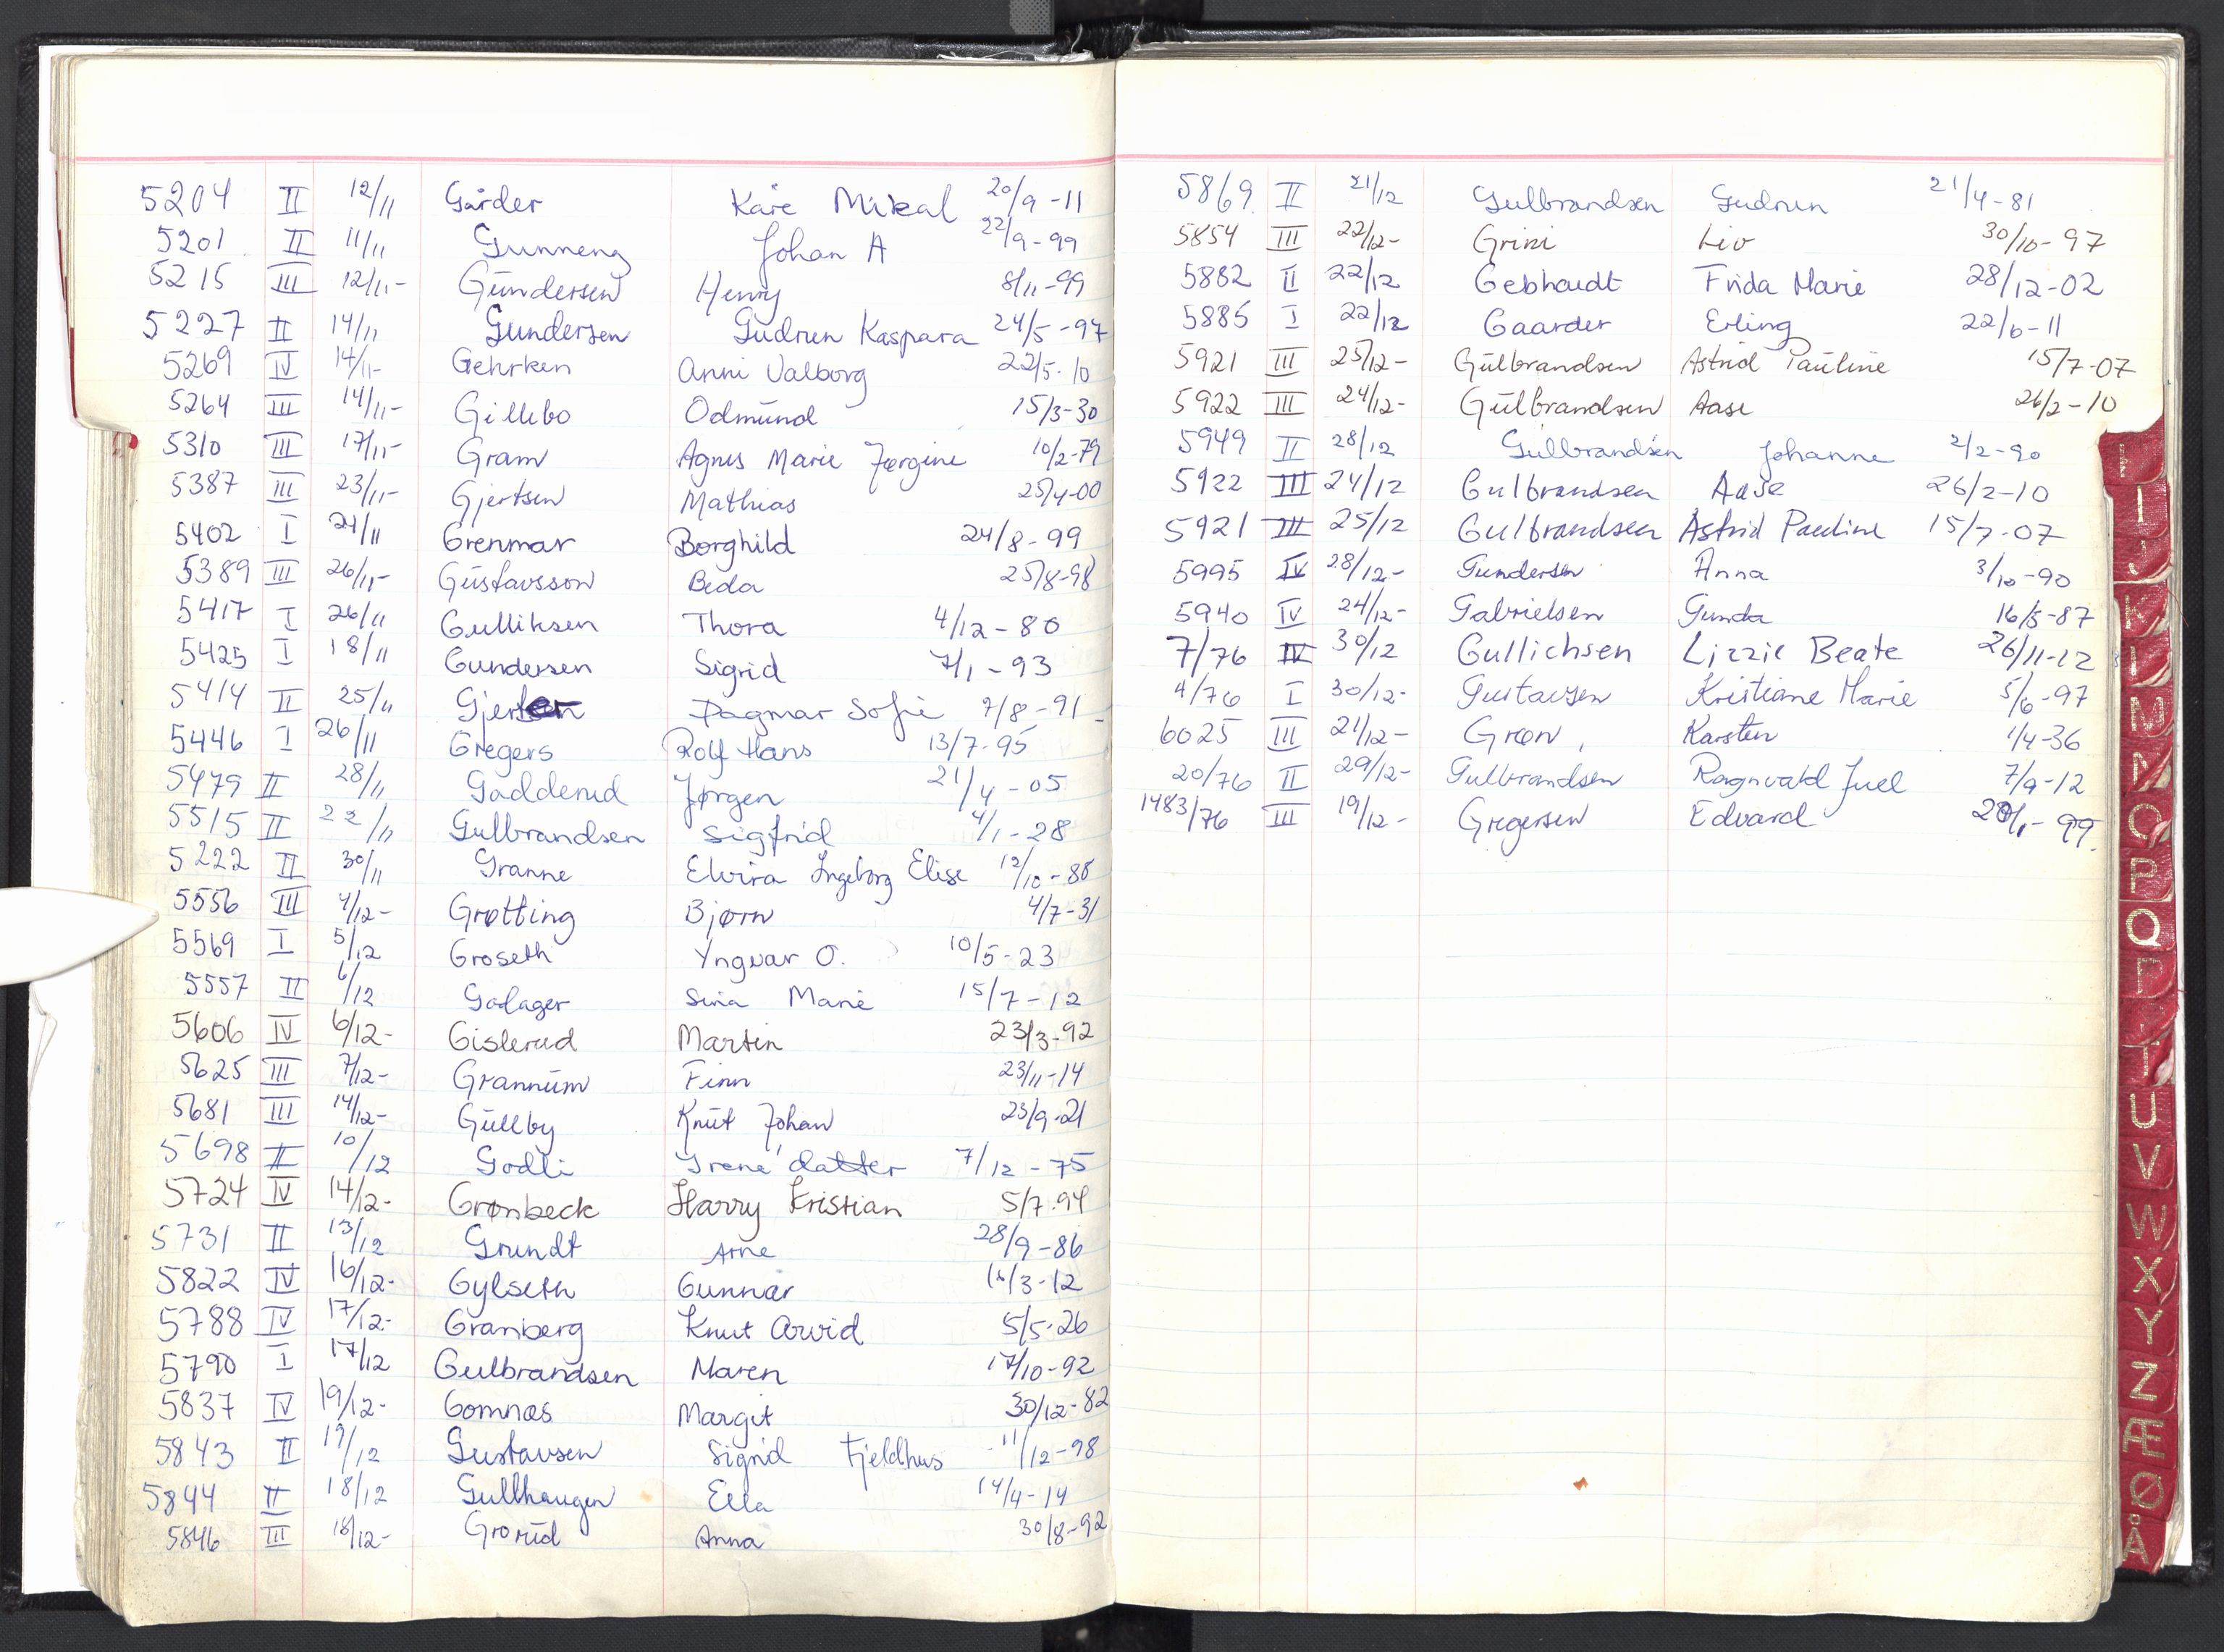 5204 II 12/11 Gårder Kåre Mikal 20/9-11
5201 II 11/11 Gunneng Johan A 22/9-99
5215 III 12/11- Gundersen Henry 8/11-99
5227 II 14/11 Gundersen Gudrun Kaspara 24/5-97
5269 IV 14/11- Gehrken Anni Valborg 22/5-10
5264 III 14/11- Gillebo Odmund 15/3-30
5310 III 17/11- Gram Agnes Marie Jørgine 10/2-79
5387 III 23/11- Gjertsen Mathias 25/4-00
5402 I 21/11 Grenmar Borghild 24/8-99
5389 III 26/11- Gustavsson Beda 25/8-98
5417 I 26/11 Gulliksen Thora 4/12-80
5425 I 18/11 Gundersen Sigrid 7/1-93
5414 II 25/11 Dagmar Sofie 7/8-91
5446 I 26/11 Gregers Rolf Hans 13/7-95
5479 II 28/11 Gadderud Jørgen 21/4-05
5515 II 22/11 Gulbrandsen Sigfrid 4/1-28
5222 II 30/11 Granne Elvira Ingeborg Elise 12/10-88
5556 III 4/12- Grøtting Bjørn 4/7-31
5569 I 5/12 Groseth Yngvar O. 10/5-23
5557 II 6/12 Godager Sina Marie 15/7-12
5606 IV 6/12- Gislerud Martin 23/3-92
5625 III 7/12- Grannum Finn 23/11-14
5681 III 14/12- Gullby Knut Johan 23/9-21
5698 II 10/12 Godli Irene datter 7/12-75
5724 IV 14/12- Grønbeck Harry Kristian 5/7-94
5731 II 13/12 Grundt Arne 28/9-86
5822 IV 16/12- Gylseth Gunnar 16/3-12
5788 IV 17/12- Granberg Knut Arvid 5/5-26
5790 I 17/12 Gulbrandsen Maren 17/10-92
5837 IV 19/12- Gomnæs Margit 30/12-82
5843 II 19/12 Gustavsen Sigrid Fjeldhus 11/12-98
5844 II 18/12 Gullhaugen Ella 14/4-14
5846 III 18/12- Grorud Anna 30/8-92
5869 II 21/12 Gulbrandsen Gudrun 21/4-81
5854 III 22/12- Grini Liv 30/10-97
5882 II 22/12 Gebhardt Frida Marie 28/12-02
5885 I 22/12 Gaarder Erling 22/6-11
5921 III 25/12- Gulbrandsen Astrid Pauline 15/7-07
5922 III 24/12- Gulbrandsen Aase 26/2-10
5949 II 28/12 Gulbrandsen Johanne 2/2-90
5922 III 24/12 Gulbrandsen Aase 26/2-10
5921 III 25/12 Gulbrandsen Astrid Pauline 15/7-07
5995 IV 28/12- Gundersen Anna 3/10-90
5940 IV 24/12- Gabrielsen Gunda 16/5-87
7/76 IV 30/12 Gullichsen Lizzie Beate 26/11-12
4/76 I 30/12- Gustavsen Kristiane Marie 5/6-97
6025 III 21/12- Grøn, Karsten 1/4-36
20/76 II 29/12- Gulbrandsen Ragnvald Juel 7/9-12
1483/76 III 19/12- Gregersen Edvard
I
J
K
L
M
N
O
P
Q
R
T
U
V
W
X
Y
Z
Æ
Ø
Å